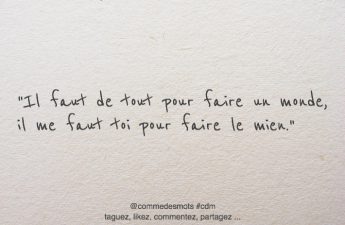 "Il faut de tout pour faire un monde,
il me faut toi pour faire le mien."
@commedesmots #cdm
taguez, likez, commentez, partagez ...